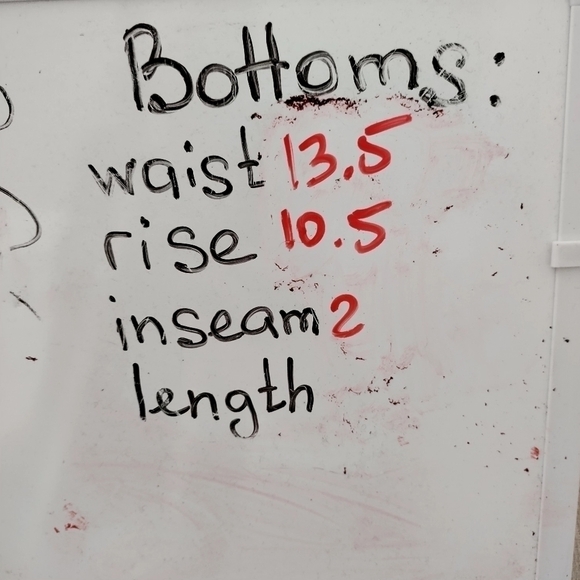 Bottoms:
waist 13.5
rise 10.5
inseam 2
length